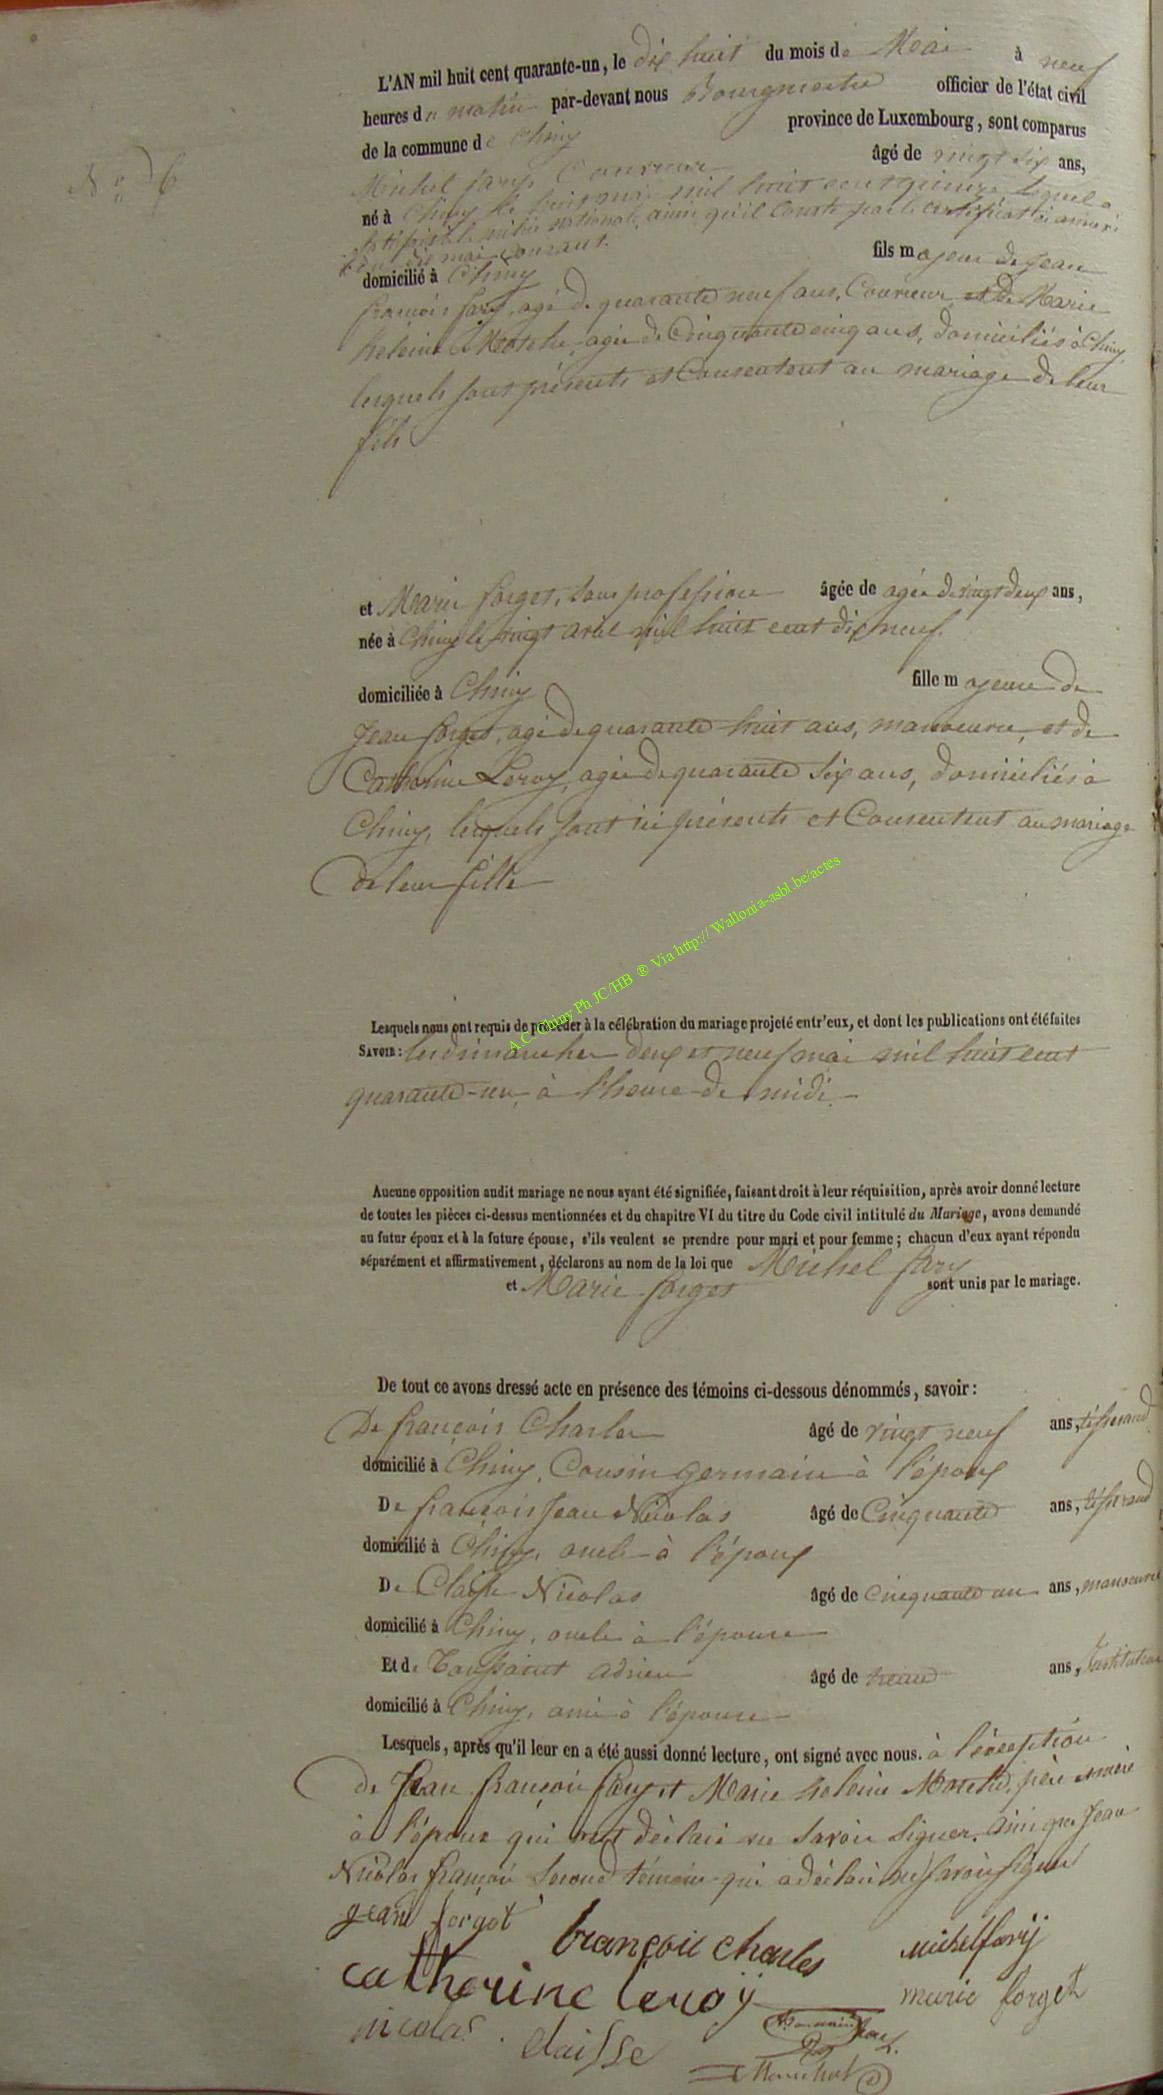 N° 6
L'AN mil huit cent quarante-un, le dix huit du mois de Mai à neuf
heures du matin par-devant nous Bourgmestre officier de l'état civil
de la commune de Chiny province de Luxembourg, sont comparus
Michel fary Couvreur âgé de vingt six ans,
né à Chiny le huit mai mil huit cent quinze lequel a
satisfait à la milice nationale, ainsi qu'il Conste par le certificat ci annexé
du dix mai Courant.
domicilié à Chiny fils majeur de Jean
françois fary, agé de quarante neuf ans, Couvreur et de Marie
heleine, agée de Cinquante cinq ans, domiciliés à Chiny,
lesquels sont présents et Consentent au mariage de leur
fils
et Marie forget, sans profession âgée de agée de vingt deux ans,
née à Chiny le vingt avril mil huit cent dix neuf.
domiciliée à Chiny fille majeure de
Jean forget, agé de quarante huit ans, manoeuvre, et de
Catherine Leroy, agée de quarante six ans, domiciliés à
Chiny, lesquels sont ici présents et Consentent au mariage
de leur fille
A.C. Chiny Ph JC/HB ® Via http:// Wallonia-asbl.be/actes
Lesquels nous ont requis de procéder à la célébration du mariage projeté entr'eux, et dont les publications ont été faites
SAVOIR : les dimanches deux et neuf mai mil huit cent
quarante-un, à l'heure de midi.
Aucune opposition audit mariage ne nous ayant été signifiée, faisant droit à leur réquisition, après avoir donné lecture
de toutes les pièces ci-dessus mentionnées et du chapitre VI du titre du Code civil intitulé du Mariage, avons demandé
au futur époux et à la future épouse, s'ils veulent se prendre pour mari et pour femme ; chacun d'eux ayant répondu
séparément et affirmativement, déclarons au nom de la loi que Michel fary
et Marie forget sont unis par le mariage.
De tout ce avons dressé acte en présence des témoins ci-dessous dénommés, savoir :
De françois Charles âgé de vingt neuf ans, tisserand
domicilié à Chiny, Cousin germain à l'époux
De françois Jean Nicolas âgé de Cinquante ans, tisserand
domicilié à Chiny, oncle à l'époux
De Claisse Nicolas âgé de cinquante un ans, manoeuvre
domicilié à Chiny, oncle à l'épouse
Et de Toussaint adrien âgé de trente ans, Instituteur
domicilié à Chiny, ami à l'épouse
Lesquels, après qu'il leur en a été aussi donné lecture, ont signé avec nous. à l'exception
de Jean françois fary et Marie heleine père et mère
à l'époux qui ont déclaré ne savoir signer, ainsi que Jean
Nicolas françois second témoin qui a déclaré ne savoir signer
jean forget
françois charles
michel farij
catherine leroÿ
marie forget
nicolas claisse